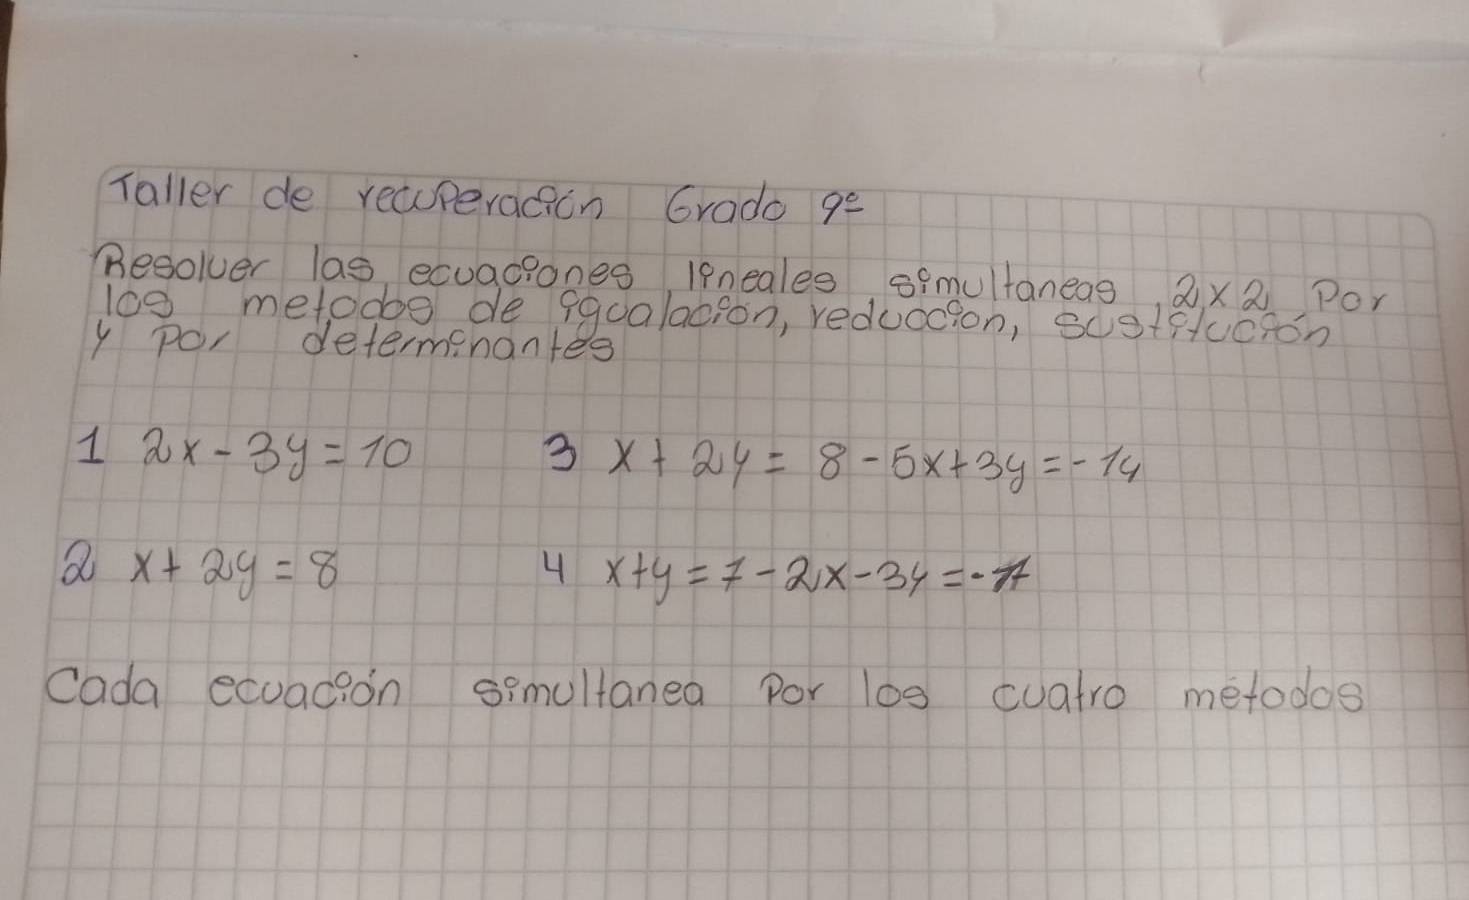 Taller de recuperación Grado 9º
Resolver las ecuaciones lineales simultaneas, 2x2 Por
los metodos de igualación, reduccion, sustitución
y por determinantes
1 2x - 3y = 10
3 x + 2y = 8 - 5x + 3y = - 14
2 x + 2y = 8
4 x + y = 7 - 2x - 3y = -
Cada ecuación simultanea Por los cuatro métodos